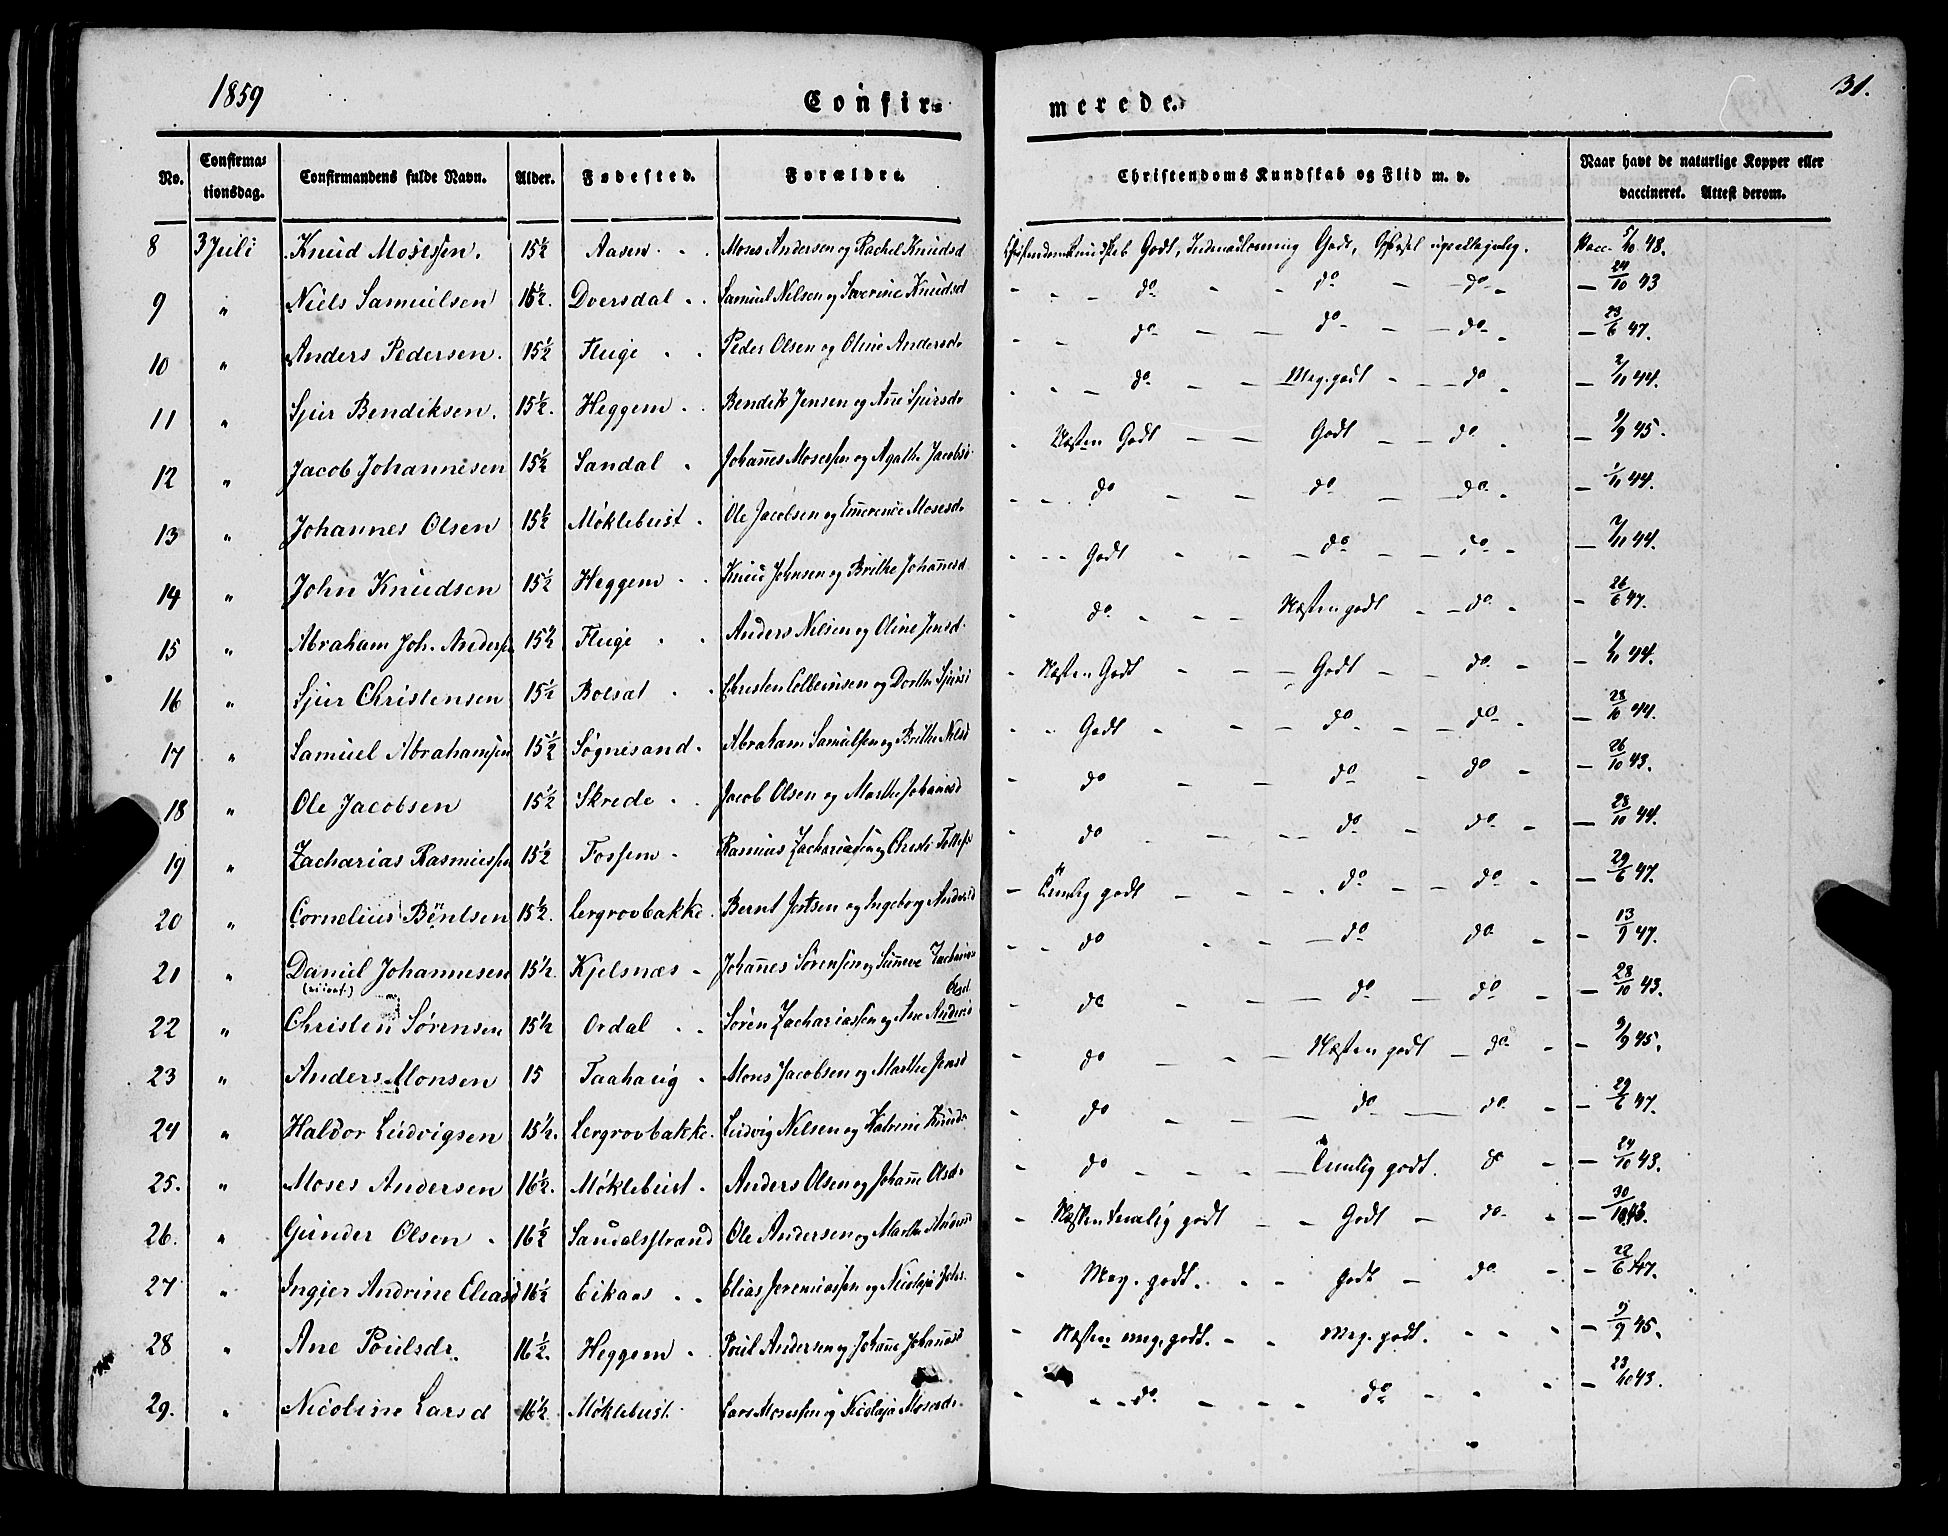 1859 Confir- merede. 31.
No. Confirma- tionsdag. Confirmandens fulde Navn. Alder. Fødested. Forældre. Christendoms Kundskab og Flid m. v. Naar havt de naturlige Kopper eller vaccineret. Attest derom.
8 3 Juli Knud Mosessen. 15½ Aasen Moses Andersen og Rachel Knudsd Godt, Godt, Vacc. 48.
9 " Niels Samuelsen 16½. Dversdal Samuel Nilsen og Severine Knudsd do do do 24/10 43
10 " Anders Pedersen. 15½ Fluge Peder Olsen og Oline Andersd. do do do 23/6 47.
11 " Sjur Bendiksen. 15½. Heggem Bendik Jensen og Ane Sjursd. do Meg. godt do 2/11 44.
12 " Jacob Johannesen 15½ Sandal Johannes Mosessen og Agathe Jacobsd. Næsten Godt Godt do 9/9 45.
13 " Johannes Olsen 15½ Møklebust Ole Jacobsen og Emerence Mosesd. do do do 1/11 44.
14 " John Knudsen 15½ Heggem Knud Johnsen og Brithe Johannesd Godt do do 7/11 44.
15 " Abraham Joh. Anderssen 15½ Fluge Anders Nilsen og Oline Jensd. do Næsten godt do 26/6 47.
16 " Sjur Christensen 15½ Bolsæt Christen Colbeinsen og Dorthe Sjursd Næsten Godt Godt do 44.
17 " Samuel Abrahamsen 15½ Søgnesand Abraham Samuelsen og Brithe Nilsd Godt do do 28/10 44.
18 " Ole Jacobsen 15½ Skrede Jacob Olsen og Marthe Johannesd do do do 26/10 43.
19 " Zacharias Rasmussen 15½ Fossem Rasmus Zachariassen og Christi do do do 28/10 44.
20 " Cornelius Bentsen 15½. Lergrovbakke Bernt Jetsen og Ingeborg Andersd Temlig godt do do 29/6 47.
21 " Daniel Johannesen 15½. Kjelsnæs Johannes Sørensen og Sunneve Zacharias do do do 13/9 47.
22 " Christen Sørensen 15½ Ordal Søren Zachariassen og Ane Andersd do do do 28/10 43.
23 " Anders Monsen 15 Taahaug Mons Jacobsen og Marthe Jensd do Næsten godt do 9/9 45.
24 " Haldor Ludvigsen 15½. Lergrovbakke. Ludvig Nilsen og Katrine Knuds. do do do 29/6 47.
25. " Moses Andersen 16½. Møklebust Anders Olsen og Johane Olsd. do Temlig godt. do 24/10 43.
26. " Gunder Olsen 16½ Sandalsstrand Ole Andersen og Marthe Andersd Næsten temelig godt Godt do 30/10 43.
27 " Ingjer Andrine Eliasd 16½ Eikaas Elias Jeremiassen og Nicolaja Johs. Meg. godt. Godt do 22/6 47.
28 " Ane Poulsdr. 16½. Heggem Poul Andersen og Johane Johannesd Næsten meg. godt. Meg. godt. 9/9 45.
29. " Nicoline Larsd 16½. Møklebust Lars Mosessen og Nicolaja Mosesd. do do 23/10 43.